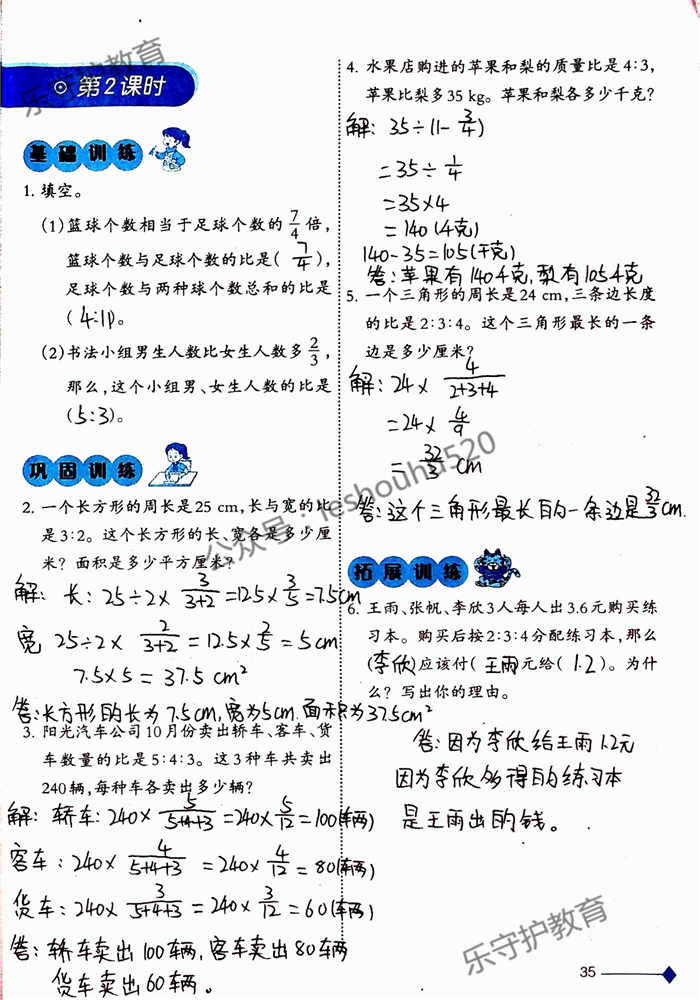 第2课时
基础训练
1. 填空。
(1)篮球个数相当于足球个数的 7/4 倍,
篮球个数与足球个数的比是( 7/4 ),
足球个数与两种球个数总和的比是
( 4:11 )。
(2)书法小组男生人数比女生人数多 2/3,
那么,这个小组男、女生人数的比是
( 5:3 )。
巩固训练
2. 一个长方形的周长是25 cm,长与宽的比
是3:2。这个长方形的长、宽各是多少厘
米?面积是多少平方厘米?
解: 长: 25÷2× 3/(3+2) =12.5× 3/5 =7.5cm
宽 25÷2× 2/(3+2) =12.5× 2/5 = 5cm
7.5×5= 37.5 cm²
答:长方形的长为7.5cm,宽为5cm.面积为37.5cm²
3. 阳光汽车公司10月份卖出轿车、客车、货
车数量的比是5:4:3。这3种车共卖出
240辆,每种车各卖出多少辆?
解: 轿车: 240× 5/(5+4+3) =240× 5/12 =100(车两)
客车: 240× 4/(5+4+3) =240× 4/12 =80(车两)
货车: 240× 3/(5+4+3) =240× 3/12 =60(车两)
答: 轿车卖出100辆,客车卖出80辆
货车卖出60辆。
4. 水果店购进的苹果和梨的质量比是4:3,
苹果比梨多35 kg。苹果和梨各多少千克?
解: 35÷(1- 3/4)
=35÷ 1/4
=35×4
=140(千克)
140-35=105(千克)
答: 苹果有140千克,梨有105千克
5. 一个三角形的周长是24 cm,三条边长度
的比是2:3:4。这个三角形最长的一条
边是多少厘米?
解: 24× 4/(2+3+4)
=24× 4/9
= 32/3 cm
答:这个三角形最长的一条边是 32/3 cm
拓展训练
6. 王雨、张帆、李欣3人每人出3.6元购买练
习本。购买后按2:3:4分配练习本,那么
(李欣)应该付(王雨)元给(1.2)。为什
么?写出你的理由。
答:因为李欣给王雨1.2元
因为李欣多得的练习本
是王雨出的钱。
35
乐守护教育
公众号:leshouhu520
乐守护教育